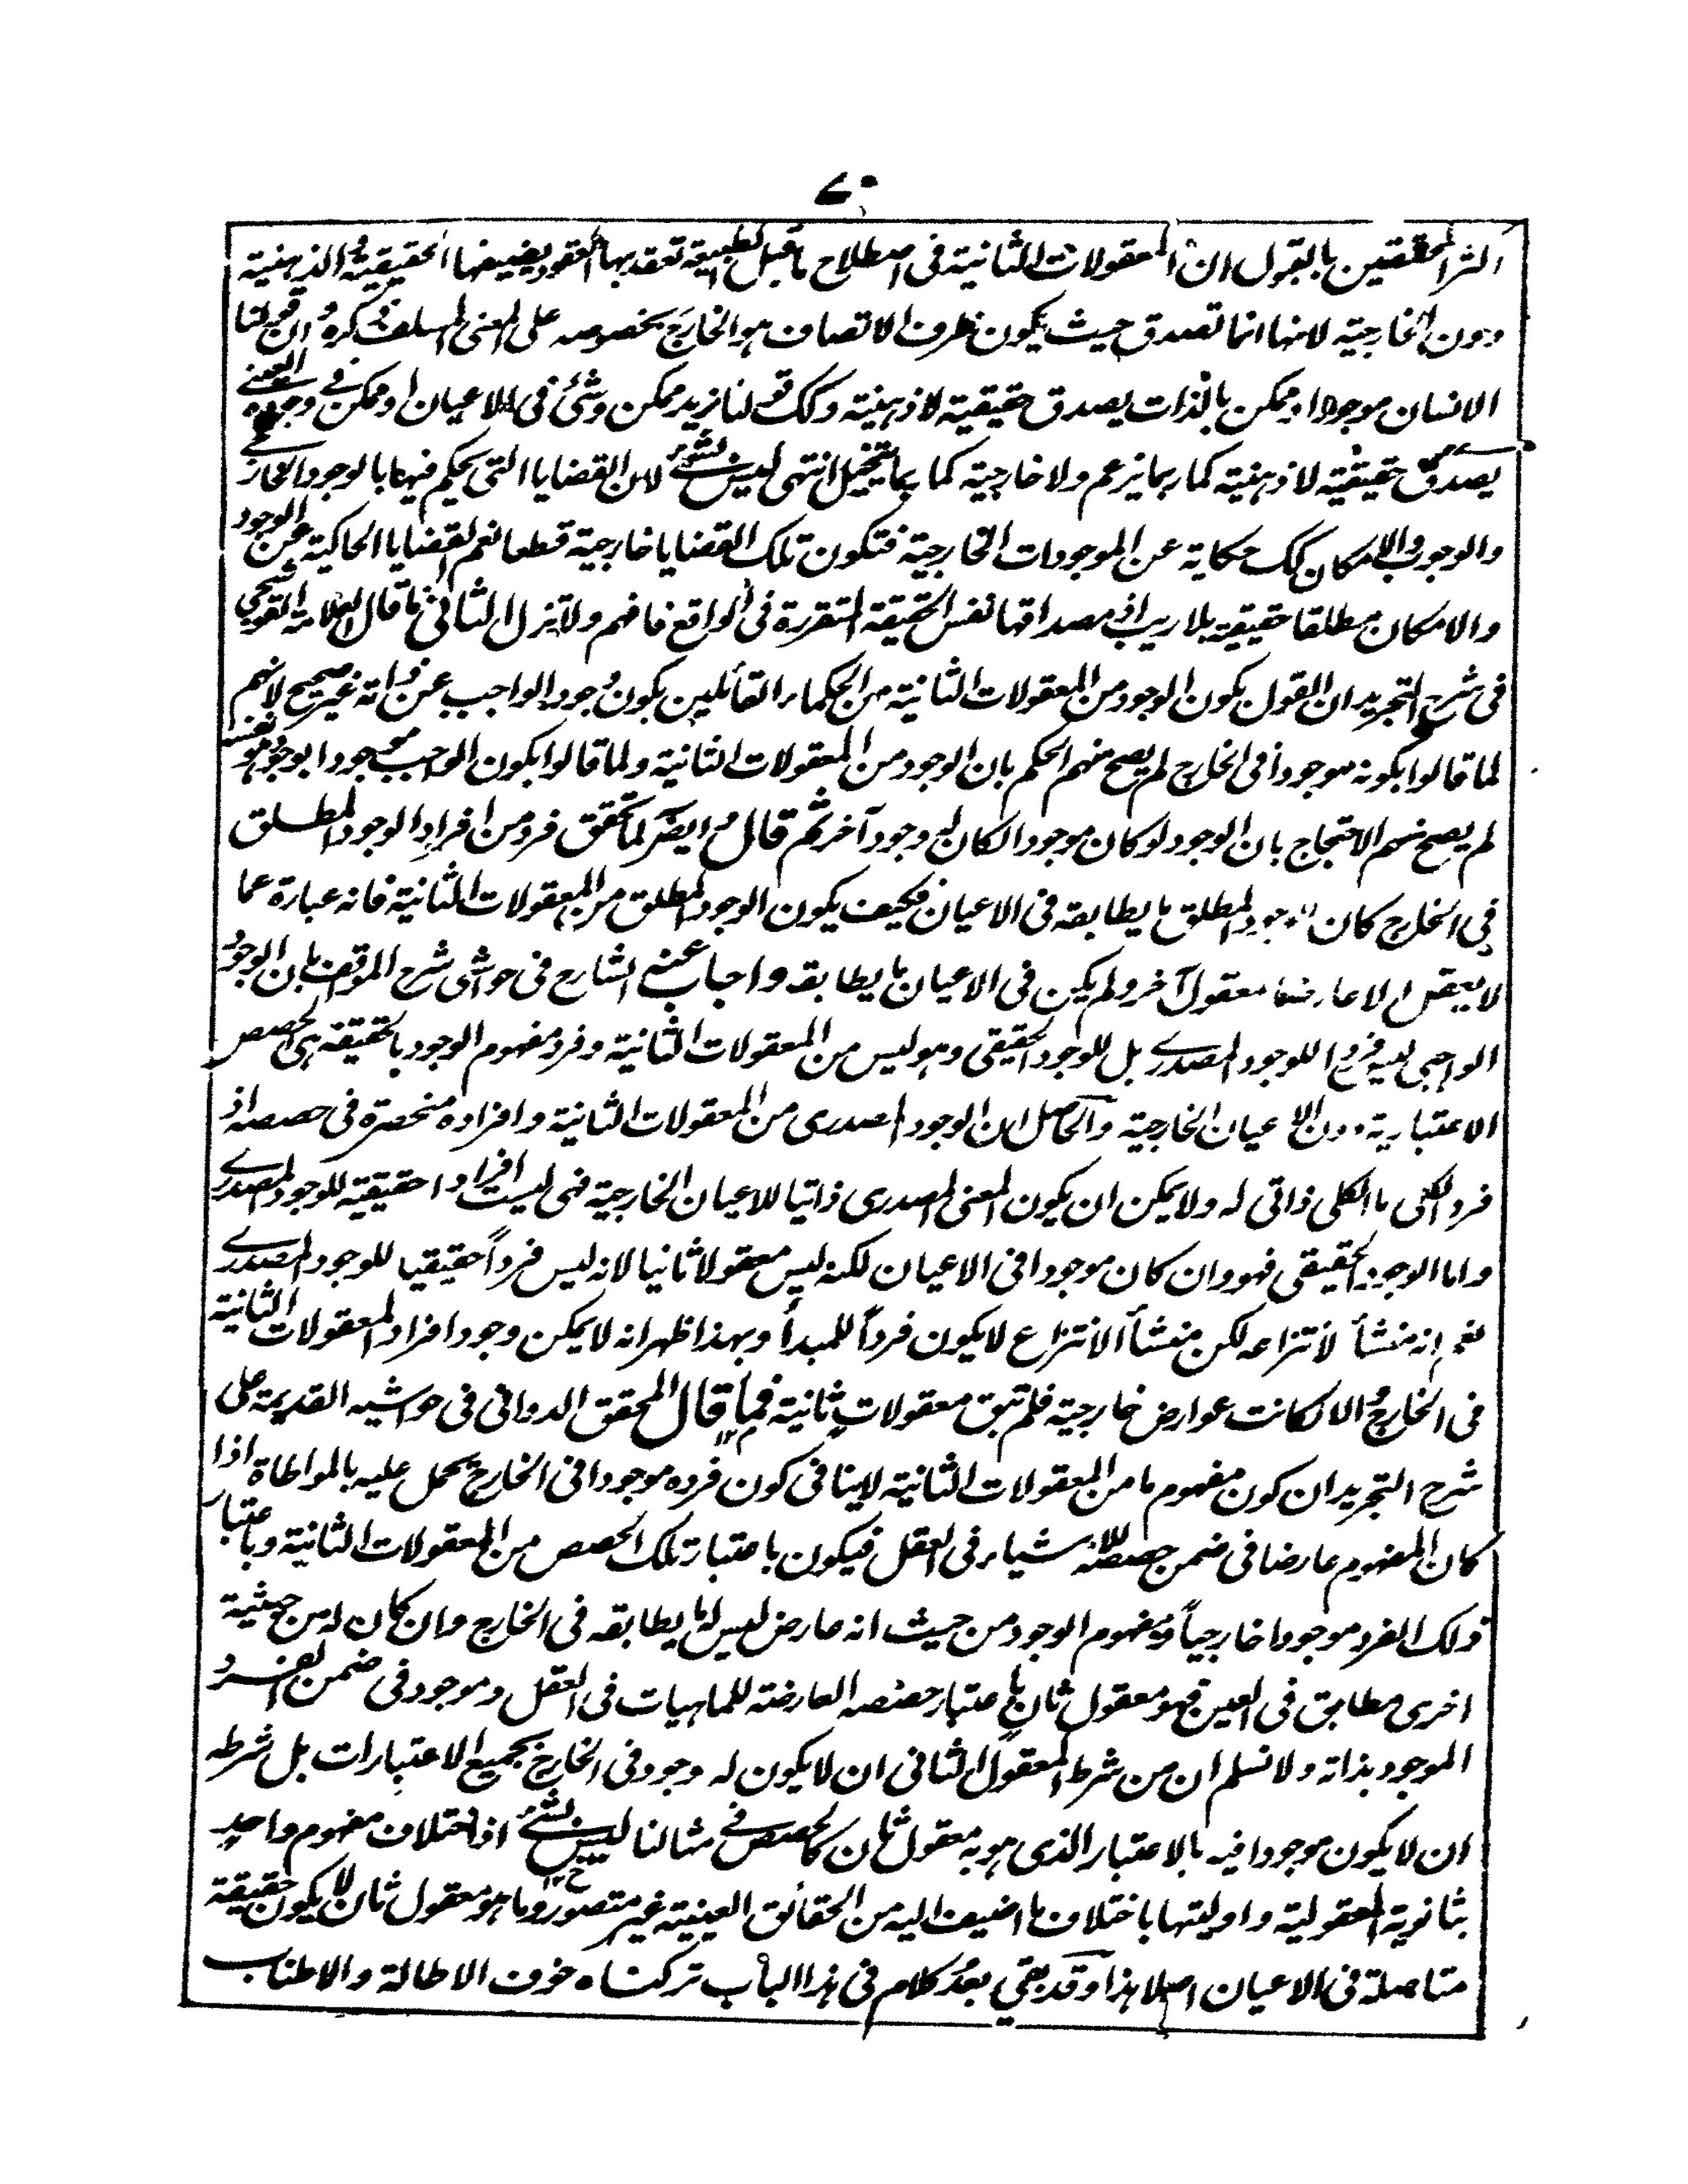 ٧٠
اكثر المحققين بالقول ان المعقولات الثانية فى اصطلاح ما قبل الطبيعة تعقد بها العقود بضيعها الحقيقية والذهنية
دون الخارجية لانها انما تصدق حيث يكون ظرف الاتصاف هو الخارج بخصوصه على المعنى السلف ذكره وان قولنا
الانسان موجود او ممكن بالذات يصدق حقيقية لا ذهنية وكك قولنا زيد ممكن وشئ فى الاعيان او ممكن فے وجوده العينے
يصدق حقيقية لا ذهنية كما ربما يزعم ولا خارجية كما ربما يتخيل انتهى ليس بشئ لان القضايا التى يحكم فيها بالوجود الخارجے
والوجوب والامكان كك حكاية عن الموجودات الخارجية فتكون تلك القضايا خارجية قطعا نعم القضايا الحاكية عن الوجود
والامكان مطلقا حقيقية بلا ريب اذ مصداقها نفس الحقيقة المتقررة فى الواقع فافهم ولا تزل الثانى ما قال العلامة القوشجى
فى شرح التجريد ان القول بكون الوجود من المعقولات الثانية من الحكماء القائلين بكون وجود الواجب عين ذاته غير صحيح لانهم
لما قالوا بكونه موجودا فى الخارج لم يصح منهم الحكم بان الوجود من المعقولات الثانية ولما قالوا بكون الواجب موجودا بوجود هو نفسه
لم يصح منهم الاحتجاج بان الوجود لو كان موجودا لكان له وجود آخر ثم قال وايضا لما تحقق فرد من افراد الوجود المطلق
فى الخارج كان للوجود المطلق ما يطابقه فى الاعيان فكيف يكون الوجود المطلق من المعقولات الثانية فانه عبارة عما
لا يعقل الا عارضا لمعقول آخر ولم يكن فى الاعيان ما يطابقه واجاب عنه الشارح فى حواشى شرح المواقف بان الوجود
الواجبى ليس فردا للوجود المصدرے بل للوجود الحقيقى وهو ليس من المعقولات الثانية وفرد مفهوم الوجود بالحقيقة هى الحصص
الاعتبارية دون الاعيان الخارجية والحاصل ان الوجود المصدرى من المعقولات الثانية وافراده منحصرة فى حصصه اذ
فرد الكلى ما الكلى ذاتى له ولا يمكن ان يكون المعنى المصدرى ذاتيا للاعيان الخارجية فهى ليست افرادا حقيقية للوجود المصدرے
واما الوجود الحقيقى فهو وان كان موجودا فى الاعيان لكنه ليس معقولا ثانيا لانه ليس فرداً حقيقيا للوجود المصدرے
نعم انه منشأ لانتزاعه لكن منشأ الانتزاع لا يكون فرداً للمبدأ وبهذا ظهر انه لا يمكن وجود افراد المعقولات الثانية
فى الخارج والا لكانت عوارض خارجية فلم تبق معقولات ثانية فما قال المحقق الدوانى فى حواشيه القديمة على
شرح التجريد ان كون مفهوم ما من المعقولات الثانية لا ينافى كون فرده موجودا فى الخارج يحمل عليه بالمواطاة اذا
كان المفهوم عارضا فى ضمن حصصه للاشياء فى العقل فيكون باعتبار تلك الحصص من المعقولات الثانية وباعتبار
ذلك الفرد موجودا خارجياً ومفهوم الوجود من حيث انه عارض ليس له ما يطابقه فى الخارج وان كان له من حيثية
اخرى مطابق فى العين فهو معقول ثان باعتبار حصصه العارضة للماهيات فى العقل وموجود فى ضمن الفرد
الموجود بذاته ولا نسلم ان من شرط المعقول الثانى ان لا يكون له وجود فى الخارج بجميع الاعتبارات بل شرطه
ان لا يكون موجودا فيه بالاعتبار الذى هو به معقول ثان كالحصص فے مثالنا ليس بشئ اذ اختلاف مفهوم واحد
بثانوية المعقولية واوليتها باختلاف ما اضيف اليه من الحقائق العينية غير متصور وما هو معقول ثان لا يكون حقيقة
متاصلة فى الاعيان اصلا هذا وقد بقى بعد كلام فى هذا الباب تركناه خوف الاطالة والاطناب